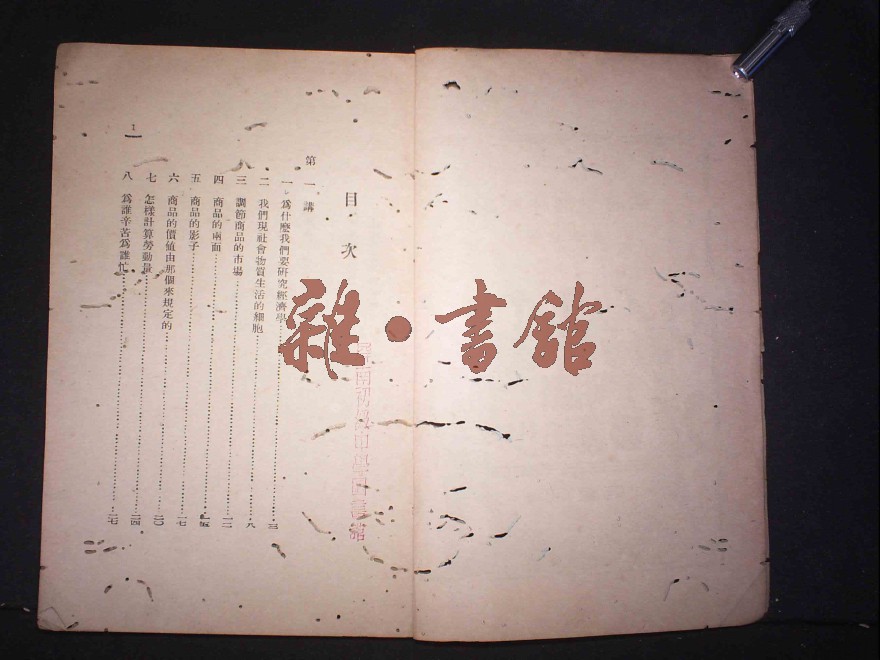 目次
第一講
一 爲什麼我們要研究經濟學 三
二 我們現社會物質生活的細胞 八
三 調節商品的市場 一二
四 商品的兩面
五 商品的影子 一七
六 商品的價值由那個來規定的 二〇
七 怎樣計算勞動量 二四
八 爲誰辛苦爲誰忙 二七
1
雜·書館